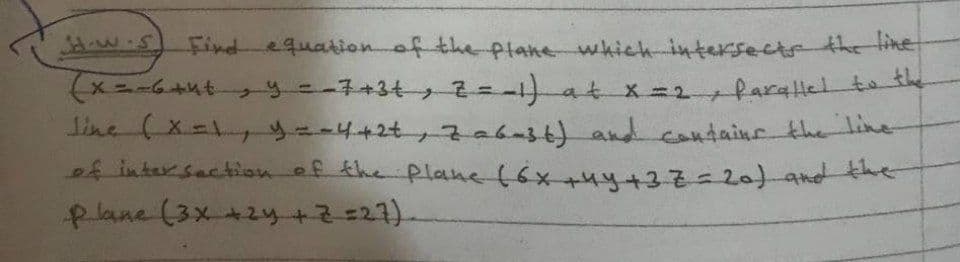 H.W.5) Find equation of the plane which intersects the line
(x=-6+4t, y=-7+3t, z=-1) at x=2, Parallel to the
line (x=1, y=-4+2t, z=6-3t) and contains the line
of intersection of the plane (6x+4y+3z=20) and the
plane (3x+2y+z=27).